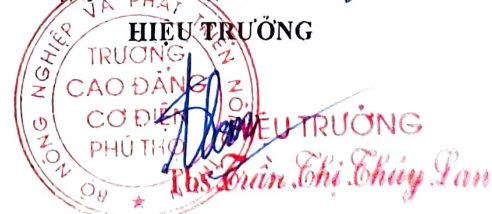 HIỆU TRƯỞNG
BỘ NÔNG NGHIỆP VÀ PHÁT TRIỂN NÔ
TRƯỜNG
CAO ĐẲNG
CƠ ĐIỆN
PHÚ THỌ
HIỆU TRƯỞNG
ThS Trần Thị Thúy Lan